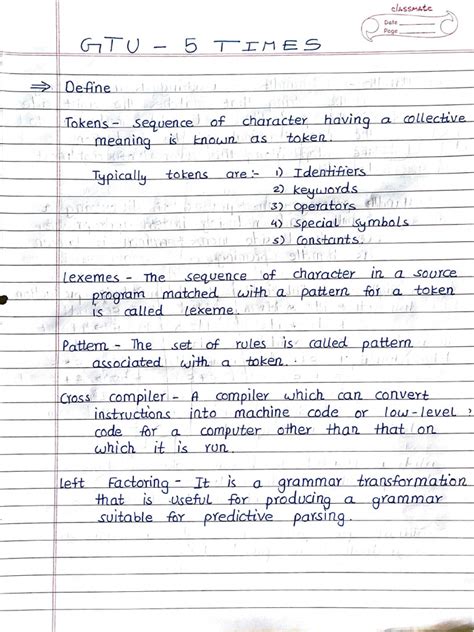 classmate
Date
Page
GTU - 5 TIMES
⇒ Define
Tokens - sequence of character having a collective
meaning is known as token.
Typically tokens are :- 1) Identifiers
2) keywords
3) operators
4) special symbols
5) constants.
Lexemes - The sequence of character in a source
program matched with a pattern for a token
is called lexeme.
Pattern - The set of rules is called pattern
associated with a token.
Cross compiler - A compiler which can convert
instructions into machine code or low-level
code for a computer other than that on
which it is run.
Left Factoring - It is a grammar transformation
that is useful for producing a grammar
suitable for predictive parsing.